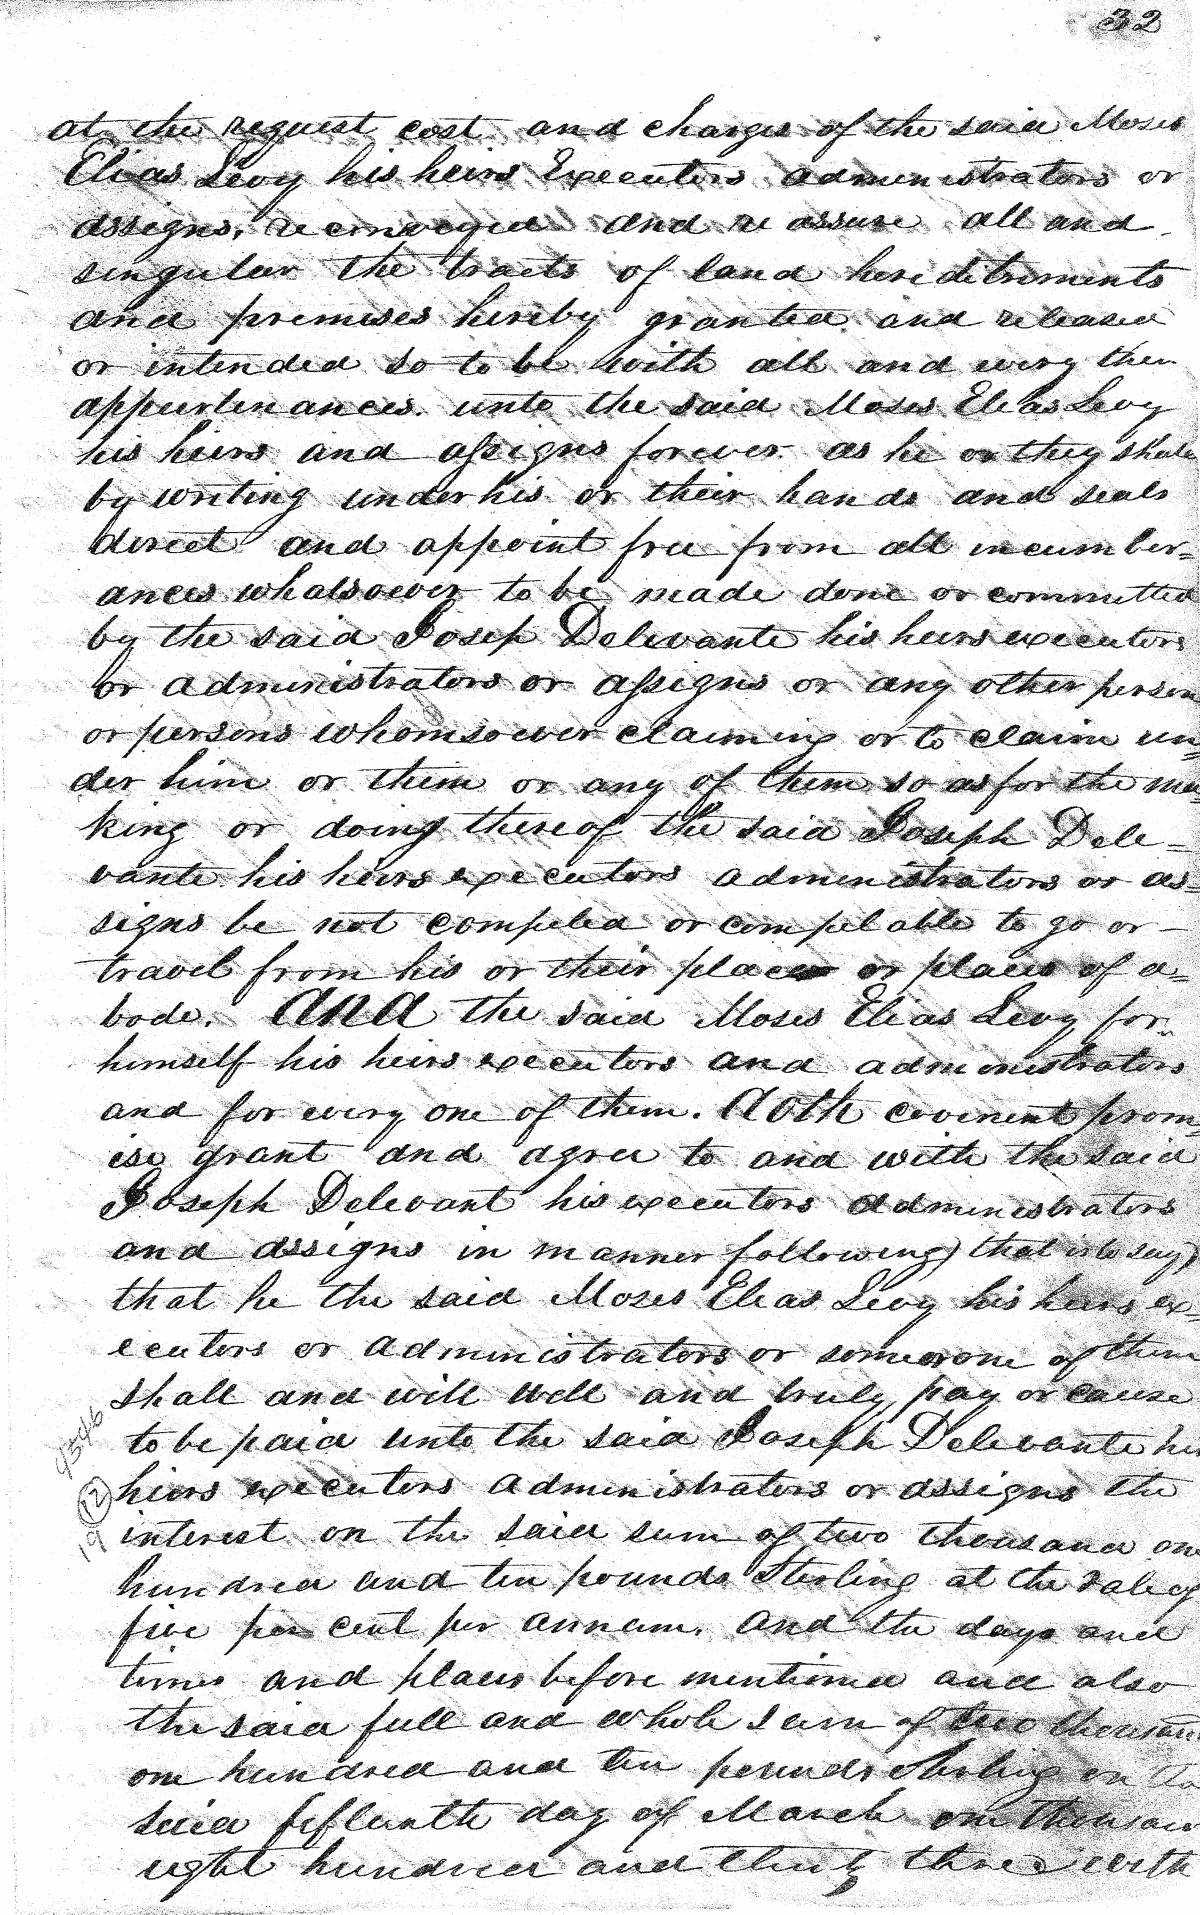 32
at the request cost and charges of the said Moses
Elias Levy his heirs Executors administrators or
assigns, reconveyed and re assure all and
singular the tracts of land hereditrments
and premises hereby granted and released
or intended so to be with all and every their
appurtenances. unto the said Moses Elias Levy
his heirs and assigns forever as he or they shall
by writing under his or their hands and seals
direct and appoint free from all incumber=
ances whatsoever to be made done or committed
by the said Josep Delevante his heirs executors
or administrators or assigns or any other person
or persons whomsoever claiming or to claim un=
der him or them or any of them so as for the ma=
king or doing thereof the said Joseph Dele=
vante his heirs executors administrators or as=
signs be not compeled or compelable to go or
travel from his or their place or places of a=
bode. And the said Moses Elias Levy for
himself his heirs executors and administrators
and for every one of them. doth covenent prom=
ise grant and agree to and with the said
Joseph Delevant his executors administrators
and assigns in manner following) that is to say)
that he the said Moses Elias Levy his heirs ex=
ecutors or administrators or some or one of them
shall and will well and truly pay or cause
to be paid unto the said Joseph Delevante his
heirs executors administrators or assigns the
interest on the said sum of two thousand one
hundred and ten pounds Sterling at the rate of
five per cent per annum. and the days and
times and places before mentioned and also
the said full and whole sum of two thousand
one hundred and ten pounds Sterling on
said day of March one thousand
eight hundred and thirty three with
4546
12
19